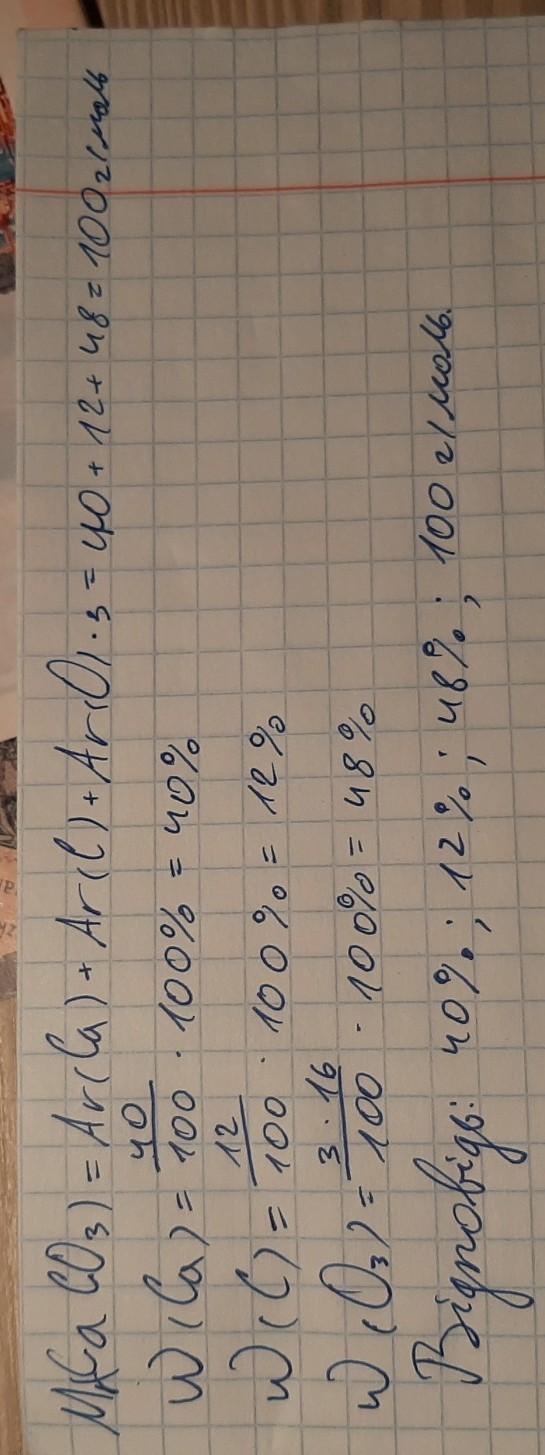 M(CaCO₃) = Ar(Ca) + Ar(C) + Ar(O)·3 = 40 + 12 + 48 = 100 г/моль
W(Ca) = 40/100 · 100% = 40%
W(C) = 12/100 · 100% = 12%
W(O₃) = 3·16/100 · 100% = 48%
Відповідь: 40%; 12%; 48%; 100 г/моль.